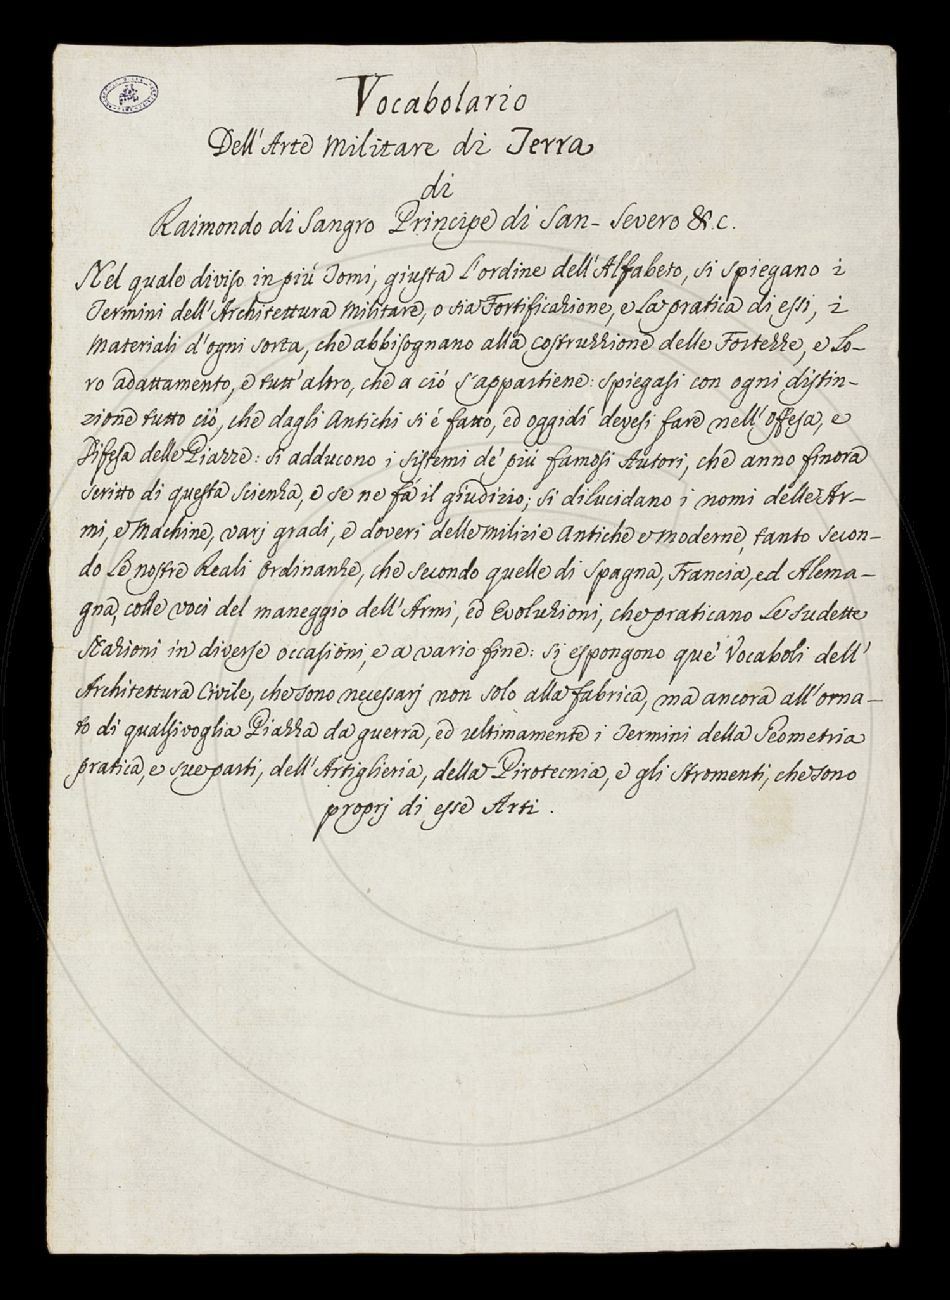 Vocabolario
Dell'Arte Militare di Terra
di
Raimondo di Sangro Principe di San-Severo &c.
Nel quale diviso in più Tomi, giusta l'ordine dell'Alfabeto, si spiegano i
Termini dell'Architettura Militare, o sia Fortificazione, e la pratica di essi, i
Materiali d'ogni sorta, che abbisognano alla costruzzione delle Fortezze, e lo-
ro adattamento, e tutt'altro, che a ciò s'appartiene: spiegasi con ogni distin-
zione tutto ciò, che dagli Antichi si è fatto, ed oggidì devesi fare nell'Offesa, e
Difesa delle Piazze: si adducono i sistemi de' più famosi Autori, che anno finora
scritto di questa scienza, e se ne fà il giudizio; si dilucidano i nomi delle Ar-
mi, e Machine, varj gradi, e doveri delle Milizie Antiche e moderne, tanto secon-
do le nostre Reali Ordinanze, che secondo quelle di Spagna, Francia, ed Alema-
gna, colle voci del maneggio dell'Armi, ed Evoluzioni, che praticano le sudette
Nazioni in diverse occasioni, e a vario fine: si espongono que' Vocaboli dell'
Architettura Civile, che sono necessarj non solo alla fabrica, ma ancora all'orna-
to di qualsivoglia Piazza da guerra, ed ultimamente i Termini della Geometria
pratica, e sue parti, dell'Artiglieria, della Pirotecnia, e gli stromenti, che sono
proprj di esse Arti.